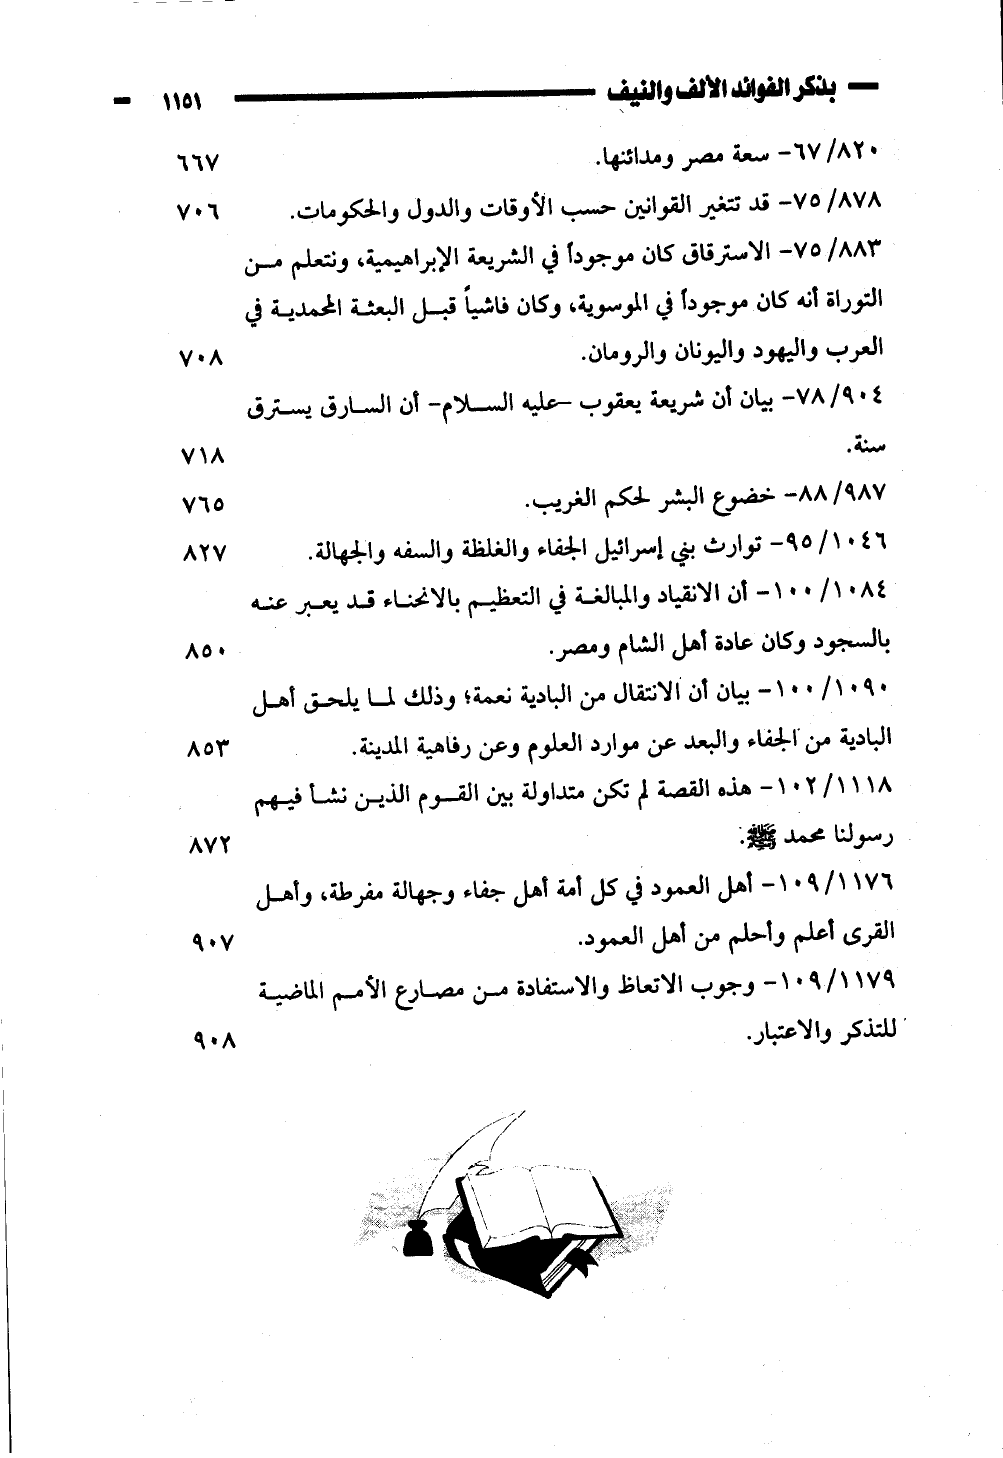 بذكر الفوائد الألف والنيف ١١٥١
٦٧/٨٢٠- سعة مصر ومدائنها. ٦٦٧
٧٥/٨٧٨- قد تتغير القوانين حسب الأوقات والدول والحكومات. ٧٠٦
٧٥/٨٨٣- الاسترقاق كان موجوداً في الشريعة الإبراهيمية، ونتعلم من
التوراة أنه كان موجوداً في الموسوية، وكان فاشياً قبل البعثة المحمدية في
العرب واليهود واليونان والرومان. ٧٠٨
٧٨/٩٠٤- بيان أن شريعة يعقوب -عليه السلام- أن السارق يسترق
سنة. ٧١٨
٨٨/٩٨٧- خضوع البشر لحكم الغريب. ٧٦٥
٩٥/١٠٤٦- توارث بني إسرائيل الجفاء والغلظة والسفه والجهالة. ٨٢٧
١٠٠/١٠٨٤- أن الانقياد والمبالغة في التعظيم بالانحناء قد يعبر عنه
بالسجود وكان عادة أهل الشام ومصر. ٨٥٠
١٠٠/١٠٩٠- بيان أن الانتقال من البادية نعمة؛ وذلك لما يلحق أهل
البادية من الجفاء والبعد عن موارد العلوم وعن رفاهية المدينة. ٨٥٣
١٠٢/١١١٨- هذه القصة لم تكن متداولة بين القوم الذين نشأ فيهم
رسولنا محمد ﷺ. ٨٧٢
١٠٩/١١٧٦- أهل العمود في كل أمة أهل جفاء وجهالة مفرطة، وأهل
القرى أعلم وأحلم من أهل العمود. ٩٠٧
١٠٩/١١٧٩- وجوب الاتعاظ والاستفادة من مصارع الأمم الماضية
للتذكر والاعتبار. ٩٠٨